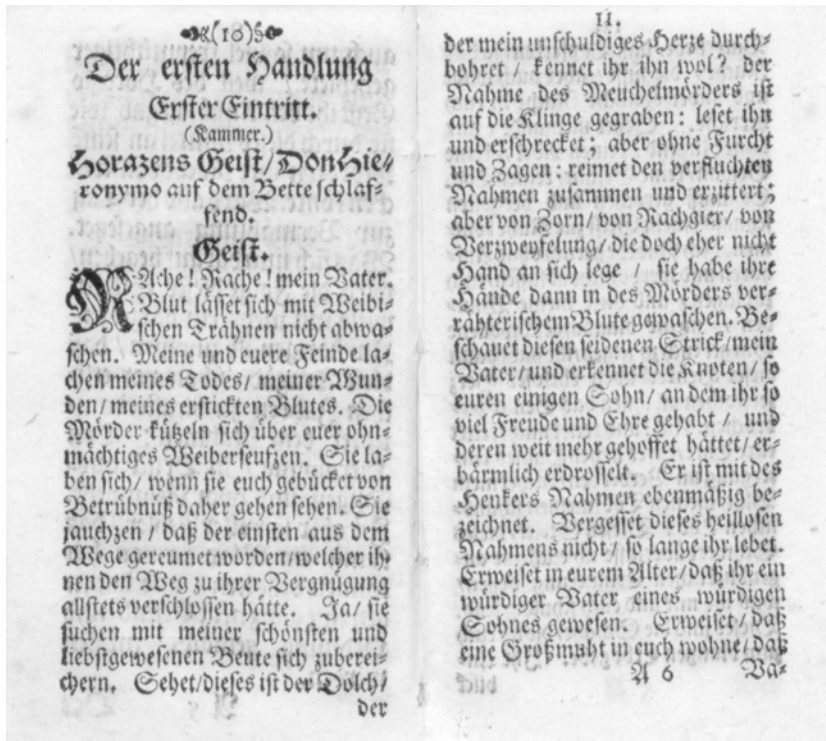 (10)
Der ersten Handlung
Erster Eintritt.
(Kammer.)
Horazens Geist/ Don Hie-
ronymo auf dem Bette schlaf-
fend.
Geist.
RAche! Rache! mein Vater.
Blut lässet sich mit Weibi-
schen Trähnen nicht abwa-
schen. Meine und euere Feinde la-
chen meines Todes/ meiner Wun-
den/ meines erstickten Blutes. Die
Mörder kützeln sich über euer ohn-
mächtiges Weiberseufzen. Sie la-
ben sich/ wenn sie euch gebücket von
Betrübnüß daher gehen sehen. Sie
jauchzen/ daß der einsten aus dem
Wege gereumet worden/ welcher ih-
nen den Weg zu ihrer Vergnügung
allstets verschlossen hätte. Ja/ sie
suchen mit meiner schönsten und
liebstgewesenen Beute sich zuberei-
chern. Sehet/ dieses ist der Dolch/
der
11.
der mein unschuldiges Herze durch-
bohret/ kennet ihr ihn wol? der
Nahme des Meuchelmörders ist
auf die Klinge gegraben: leset ihn
und erschrecket; aber ohne Furcht
und Zagen: reimet den verfluchten
Nahmen zusammen und erzittert;
aber von Zorn/ von Rachgier/ von
Verzweyfelung/ die doch eher nicht
Hand an sich lege/ sie habe ihre
Hände dann in des Mörders ver-
rähterischem Blute gewaschen. Be-
schauet diesen seidenen Strick/ mein
Vater/ und erkennet die Knoten/ so
euren einigen Sohn/ an dem ihr so
viel Freude und Ehre gehabt/ und
deren weit mehr gehoffet hättet/ er-
bärmlich erdrosselt. Er ist mit des
Henkers Nahmen ebenmäßig be-
zeichnet. Vergesset dieses heillosen
Nahmens nicht/ so lange ihr lebet.
Erweiset in eurem Alter/ daß ihr ein
würdiger Vater eines würdigen
Sohnes gewesen. Erweiset/ daß
eine Großmuht in euch wohne/ daß
A 6 Va-